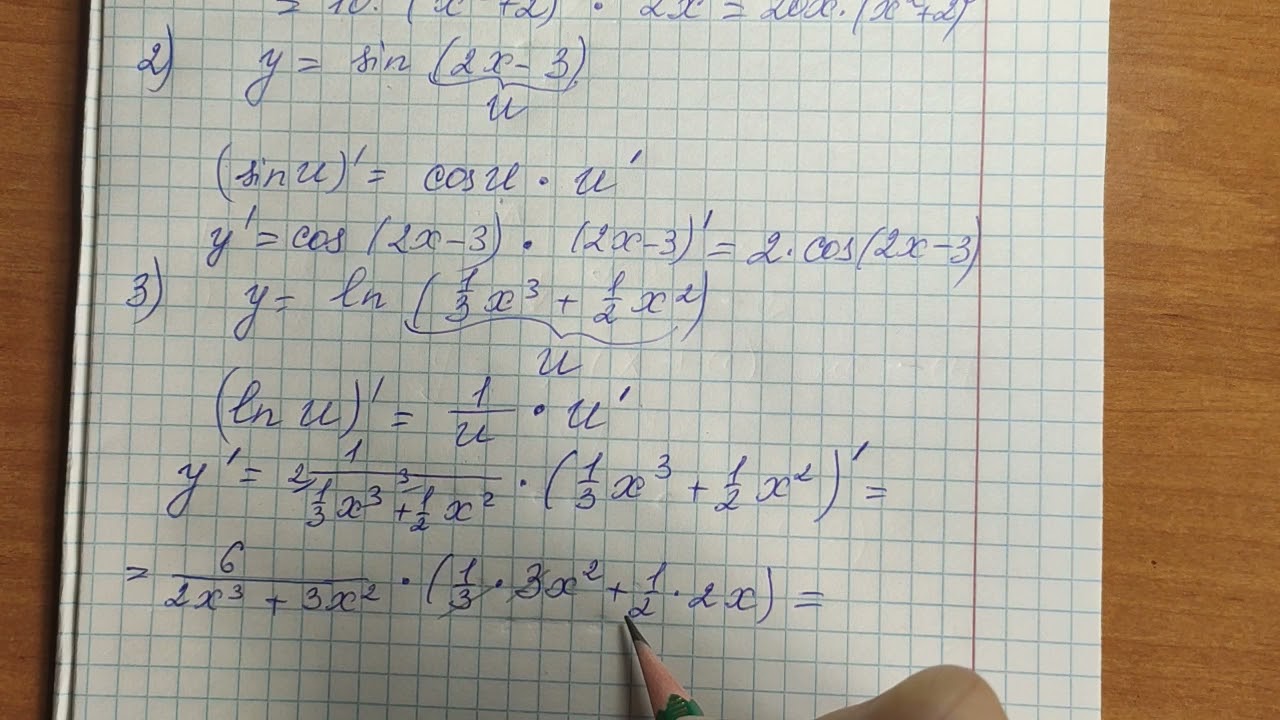 = 10 · (x² + 2) · 2x = 20x · (x² + 2)
2) y = sin (2x - 3)
u
(sin u)' = cos u · u'
y' = cos (2x - 3) · (2x - 3)' = 2 · cos(2x - 3)
3) y = ln (1/3 x³ + 1/2 x²)
u
(ln u)' = 1/u · u'
y' = 1 / (²⁄ 1/3 x³ + ³⁄ 1/2 x²) · (1/3 x³ + 1/2 x²)' =
= 6 / (2x³ + 3x²) · (1/3 · 3x² + 1/2 · 2x) =